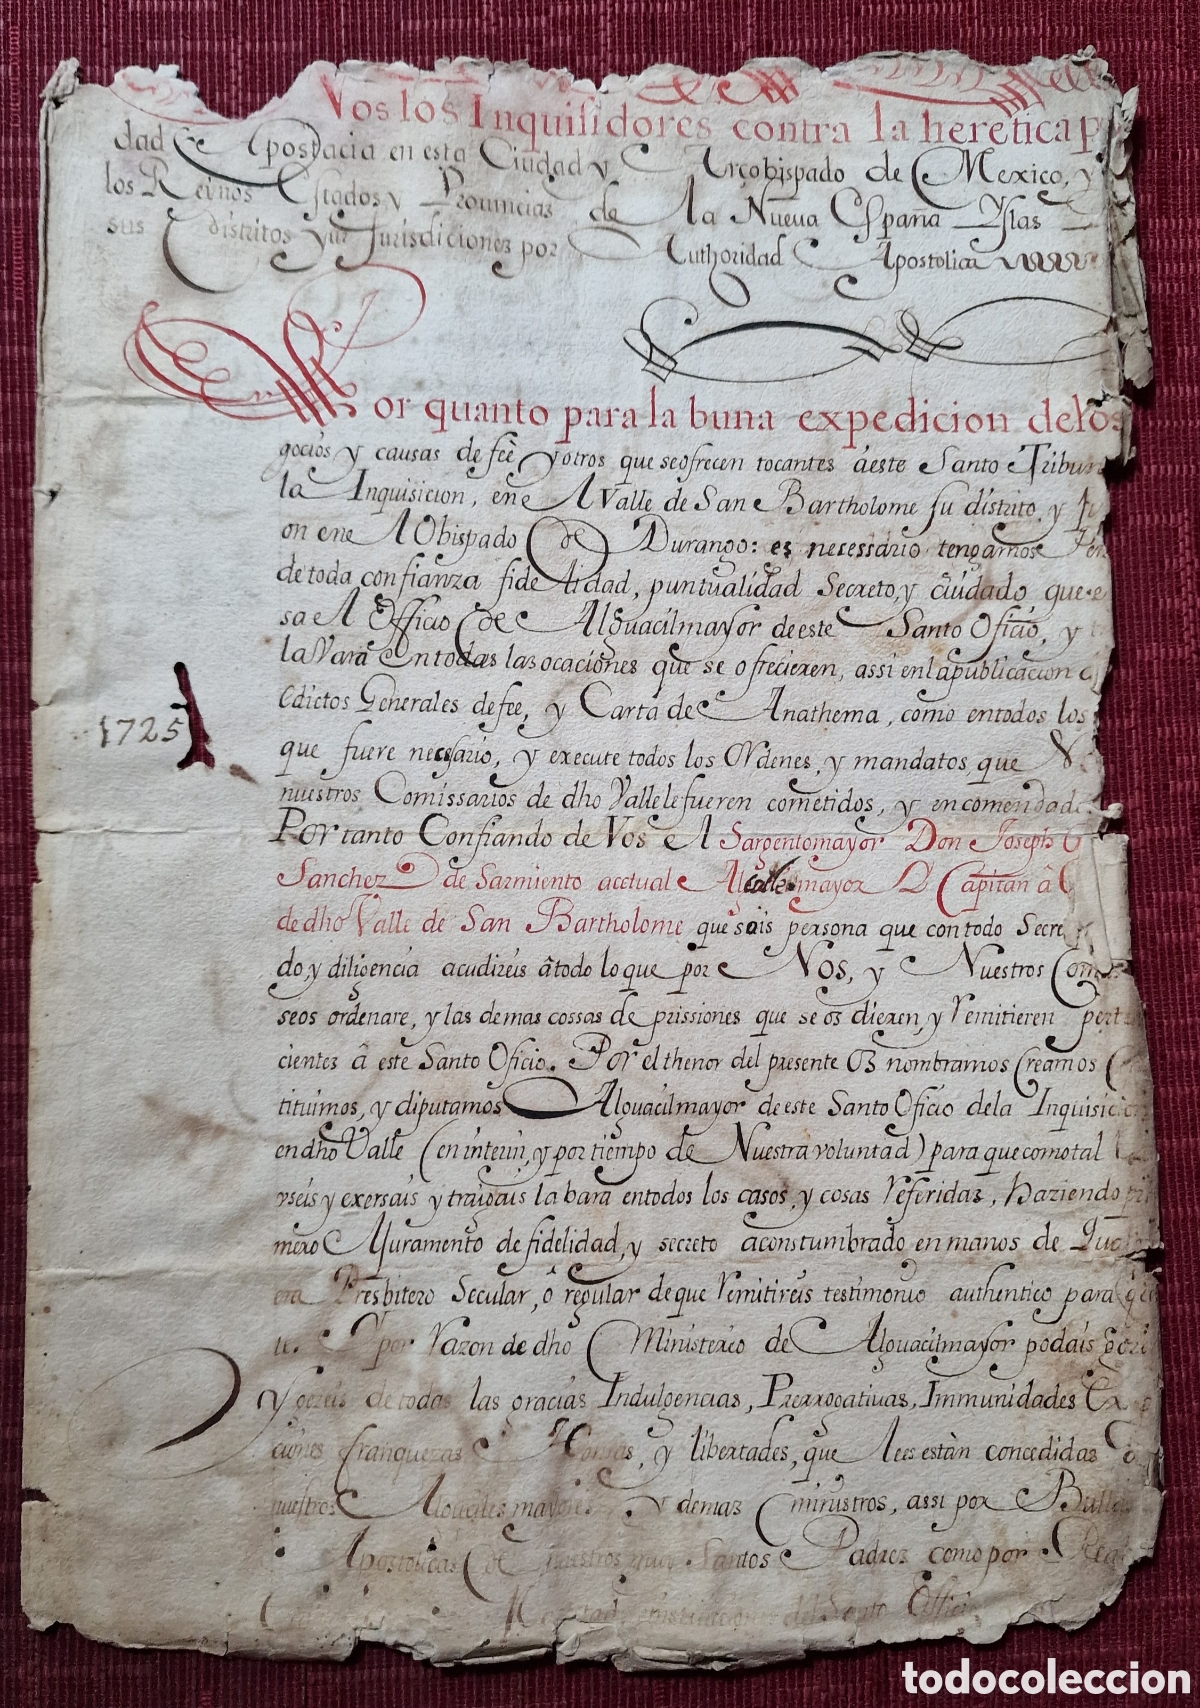 Nos los Inquisidores contra la heretica p
dad Apostacia en esta Ciudad y Arçobispado de Mexico, y
los Reynos Estados y Prouincias de la Nueva España Yslas
sus distritos y Jurisdiciones por Authoridad Apostolica
Por quanto para la buna expedicion de los
gocios y causas de feè y otros que se ofrecen tocantes à este Santo Tribun
la Inquisicion, en el Valle de San Bartholome su distrito, y
on en el Obispado de Durango: es necessario tengamos
de toda confianza fidelidad, puntualidad Secreto, y cuidado que
sa el Officio de Alguacilmayor de este Santo Oficio, y
la Vara En todas las ocaciones que se ofrecieren, assi en la publicacion
Edictos Generales de fee, y Carta de Anathema, como en todos los
1725
que fuere necessario, y execute todos los Ordenes, y mandatos, que
nuestros Comissarios de dho Valle le fueren cometidos, y encomendad
Por tanto Confiando de Vos el Sargentomayor Don Joseph
Sanchez de Sarmiento acctual Alcalle mayor Capitan â
de dho Valle de San Bartholome que sois persona que con todo Secre
do, y diligencia acudireis â todo lo que por Nos, y Nuestros Com
se os ordenare, y las demas cossas de prissiones que se os dieren, y remitieren pert
cientes â este Santo Oficio. Por el thenor del presente Os nombramos Creamos
tituimos, y diputamos Alguacilmayor de este Santo Oficio de la Inquisicion
en dho Valle (en interin, y por tiempo de Nuestra voluntad) para que como tal
rseis y exersais y traigais la bara en todos los casos, y cosas referidas, haziendo pri
mero Juramento de fidelidad, y secreto aconstumbrado en manos de
Presbitero Secular, ò regular de que remitireis testimonio authentico para que
por razon de dho Ministerio de Alguacilmayor podais
y de todas las gracias Indulgencias, Prerrogativas, Immunidades
ciones franquezas Honras, y libertades, que les estàn concedidas
nuestros Alguciles mayores y demas ministros, assi por
Apostolicas de nuestros muy Santos Padres como por
del Santo Offici
todocoleccion